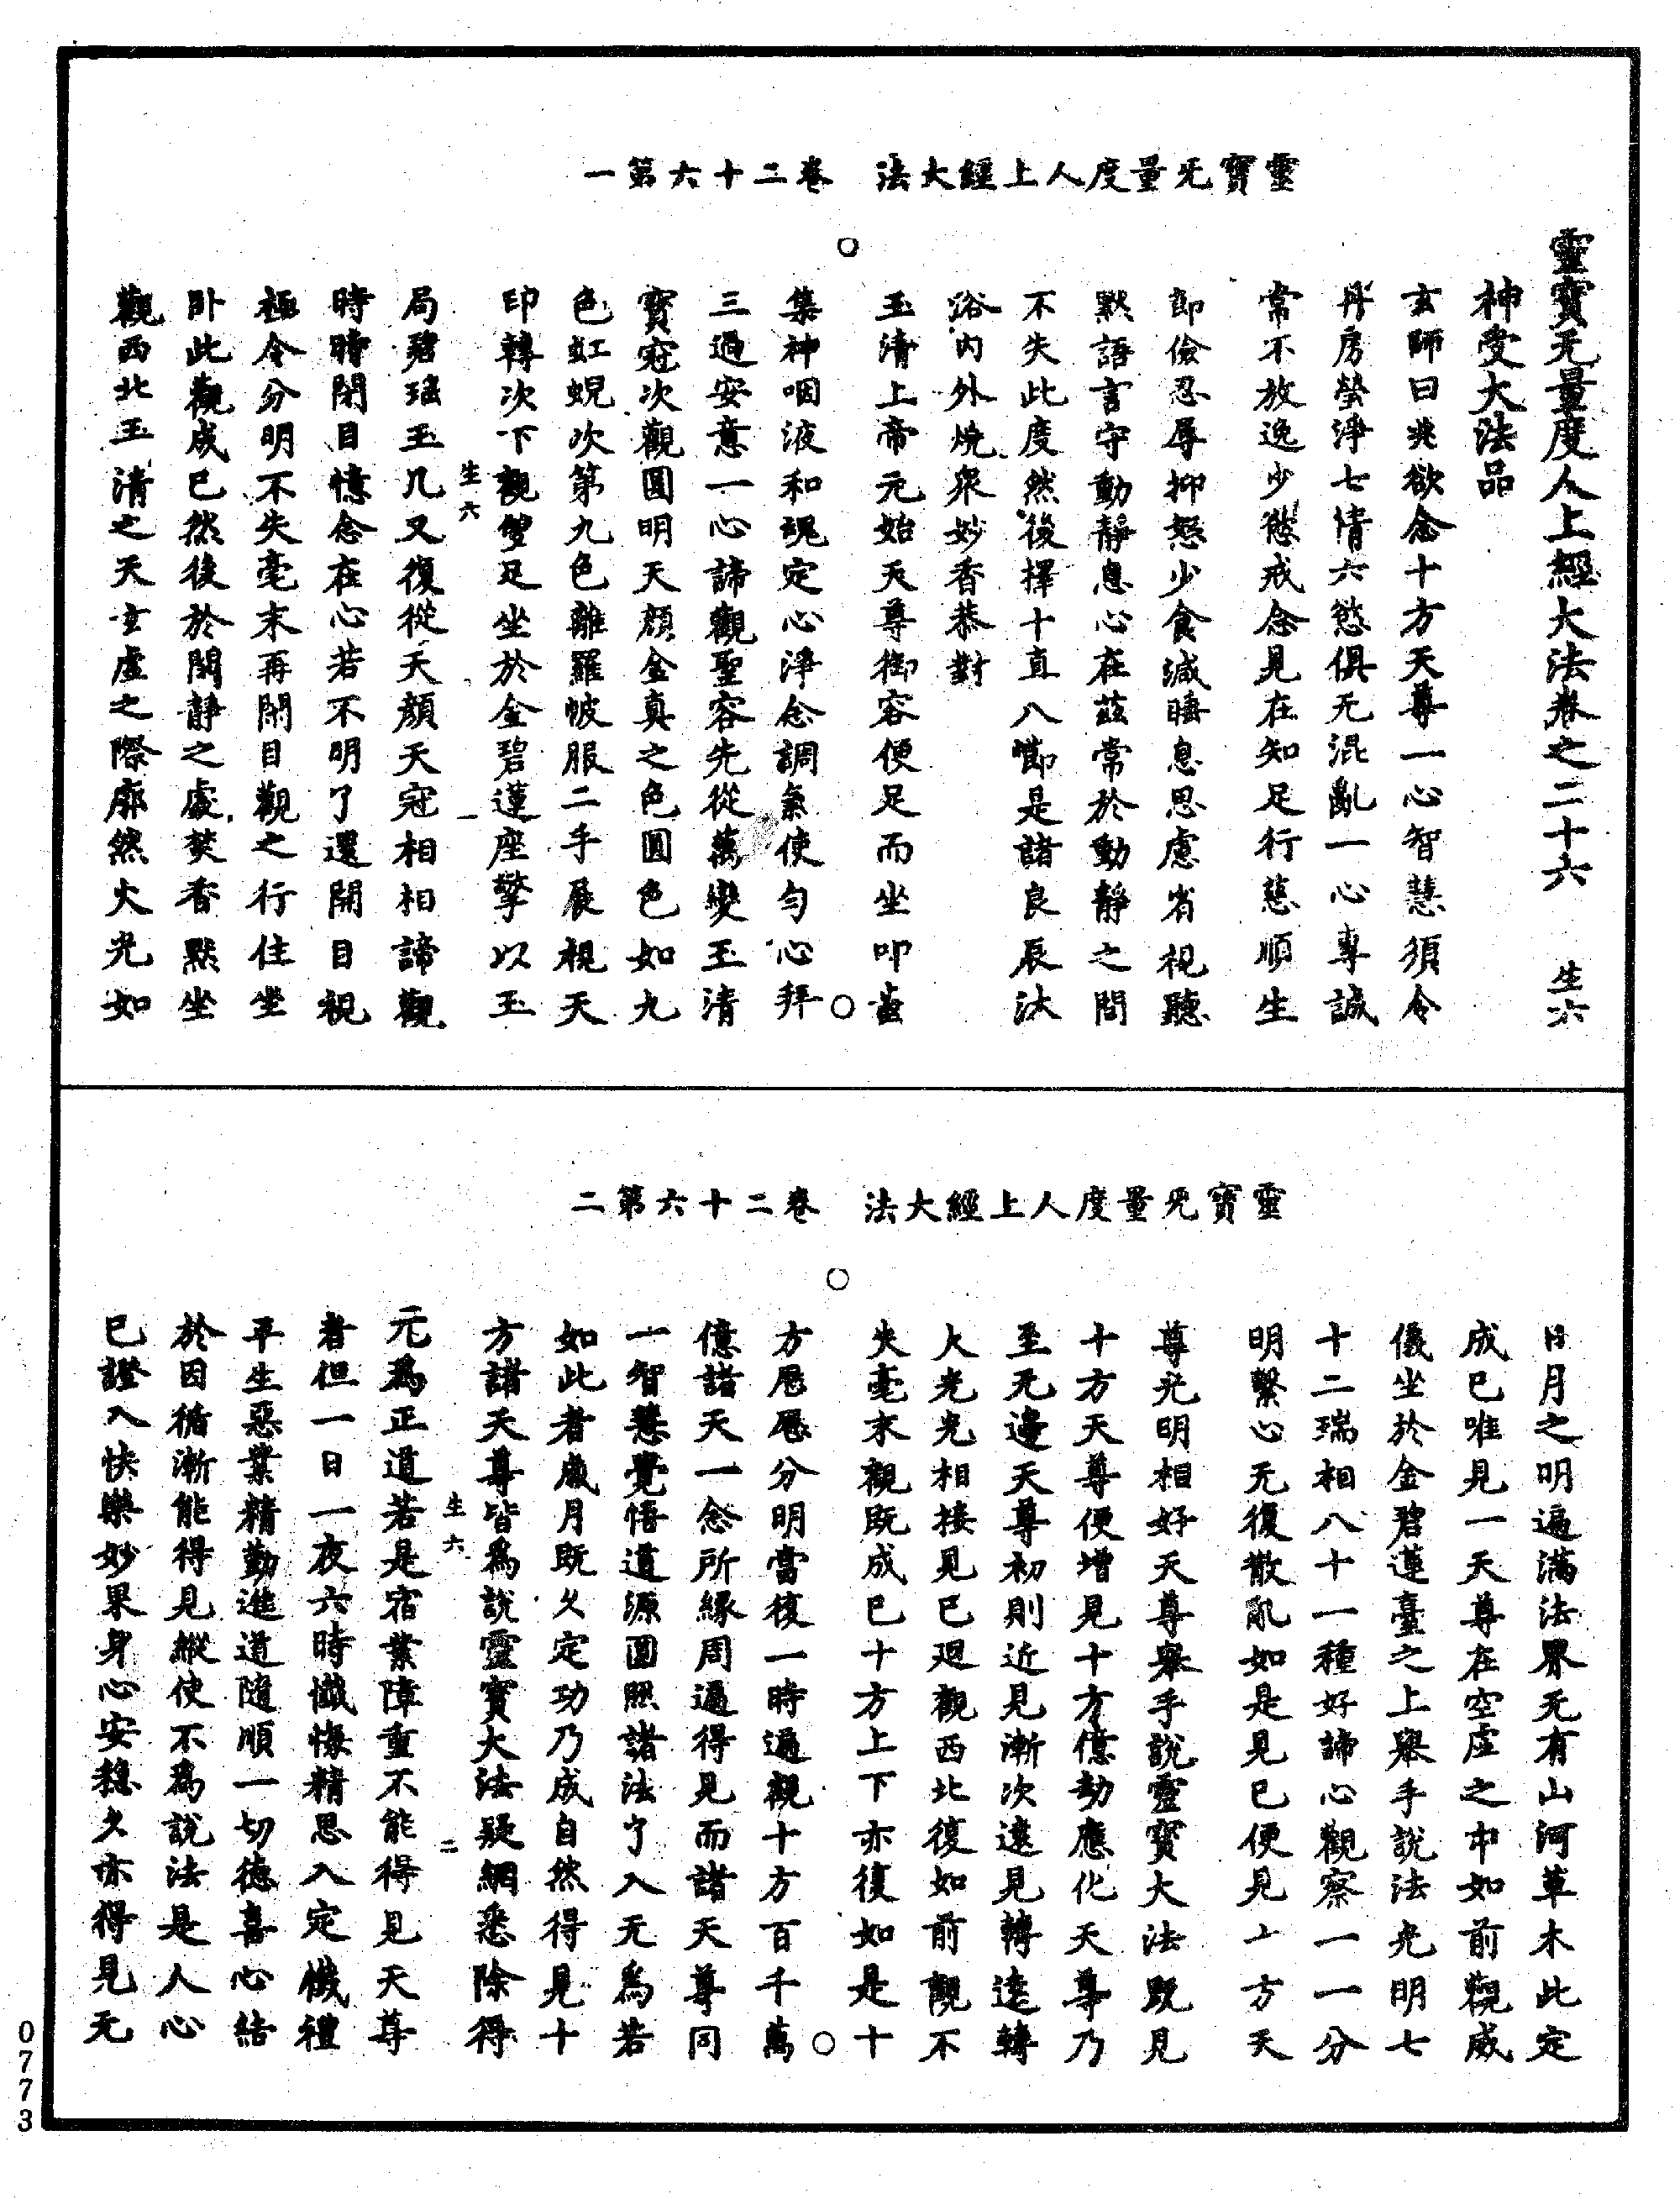 靈寶无量度人上經大法　卷二十六第一
靈寶无量度人上經大法卷之二十六　生六
神受大法品
玄師曰兆欲念十方天尊一心智慧須令
丹房瑩淨七情六慾俱无混亂一心專誠
常不放逸少少慾戒念見在知足行慈順生
節儉忍辱抑怒少食減睡息思慮省視聽
默語言守動靜息心在茲常於動靜之間
不失此度然後擇十直八節是諸良辰沐
浴內外燒衆妙香恭對
玉清上帝元始天尊御容便足而坐叩齒
集神咽液和魂定心淨念調氣使勻心拜
三過安意一心諦觀聖容先從萬變玉清
寶冠次觀圓明天顏金真之色圓色如九
色虹蜺次第九色離羅帔服二手展視天
印轉次下觀雙足坐於金碧蓮座擎以玉
生六　一
局碧瑤玉几又復從天顏天冠相相諦觀
時時閉目憶念在心若不明了還開目視
極令分明不失毫末再閉目觀之行住坐
臥此觀成已然後於閑靜之處焚香默坐
觀西北玉清之天玄虛之際廓然大光如
靈寶无量度人上經大法　卷二十六第二
日月之明遍滿法界无有山河草木此定
成已唯見一天尊在空虛之中如前觀威
儀坐於金碧蓮臺之上舉手說法光明七
十二瑞相八十一種好諦心觀察一一分
明繫心无復散亂如是見已便見上方天
尊光明相好天尊舉手說靈寶大法既見
十方天尊便增見十方億劫應化天尊乃
至无邊天尊初則近見漸次遠見轉遠轉
大光光相接見已迴觀西北復如前觀不
失毫末觀既成已十方上下亦復如是十
方歷歷分明當復一時遍觀十方百千萬
億諸天一念所緣周遍得見而諸天尊同
一智慧覺悟道源圓照諸法了入无爲若
如此者歲月既久定功乃成自然得見十
方諸天尊皆爲說靈寶大法疑網悉除得
生六　二
元爲正道若是宿業障重不能得見天尊
者但一日一夜六時懺悔精思入定懺禮
平生惡業精勤進道隨順一切德喜心結
於因循漸能得見縱使不爲說法是人心
已證入快樂妙果身心安穩久亦得見元
0773